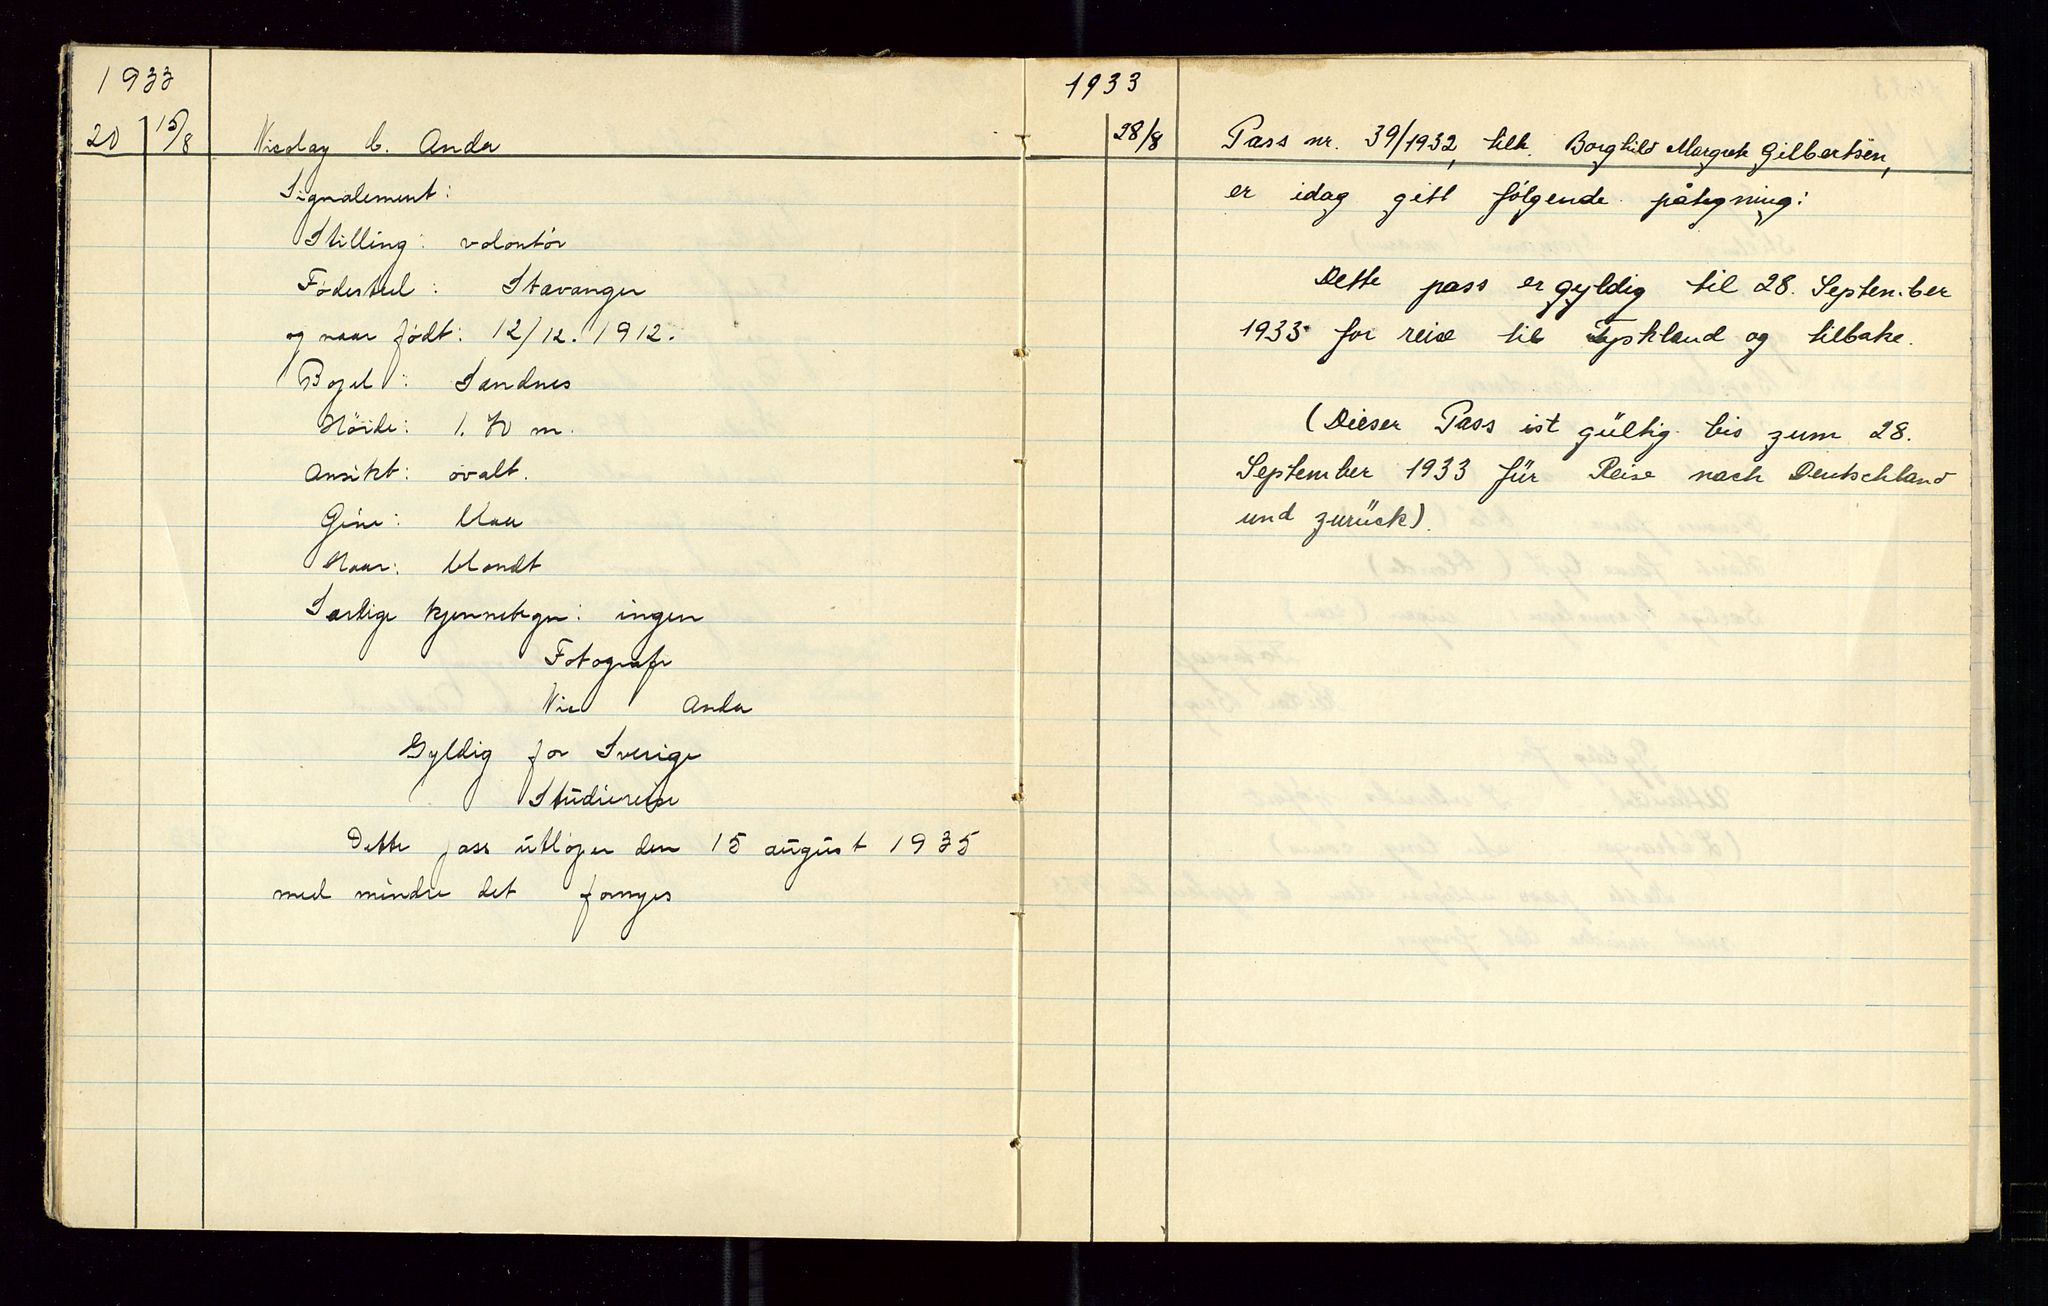 1933
20 15/8 Nicolay C. Anda
Signalement:
Stilling: volontør
Fødested: Stavanger
og naar født: 12/12. 1912.
Bopel: Sandnes
Höide: 1.70 m.
Ansikt: ovalt.
Öine: blaa
Haar: blondt
Særlige kjennetegn: ingen
Fotografi
Nic Anda
Gyldig for Sverige
Studiereise
Dette pass utløper den 15 august 1935
med mindre det fornyes
1933
28/8 Pass nr. 39/1932, tilh. Borghild Margrete Gilbertsen,
er idag gitt følgende påtegning:
Dette pass er gyldig til 28. September
1933 for reise til Tyskland og tilbake.
(Dieser Pass ist gültig bis zum 28.
September 1933 für Reise nach Deutschland
und zurück).